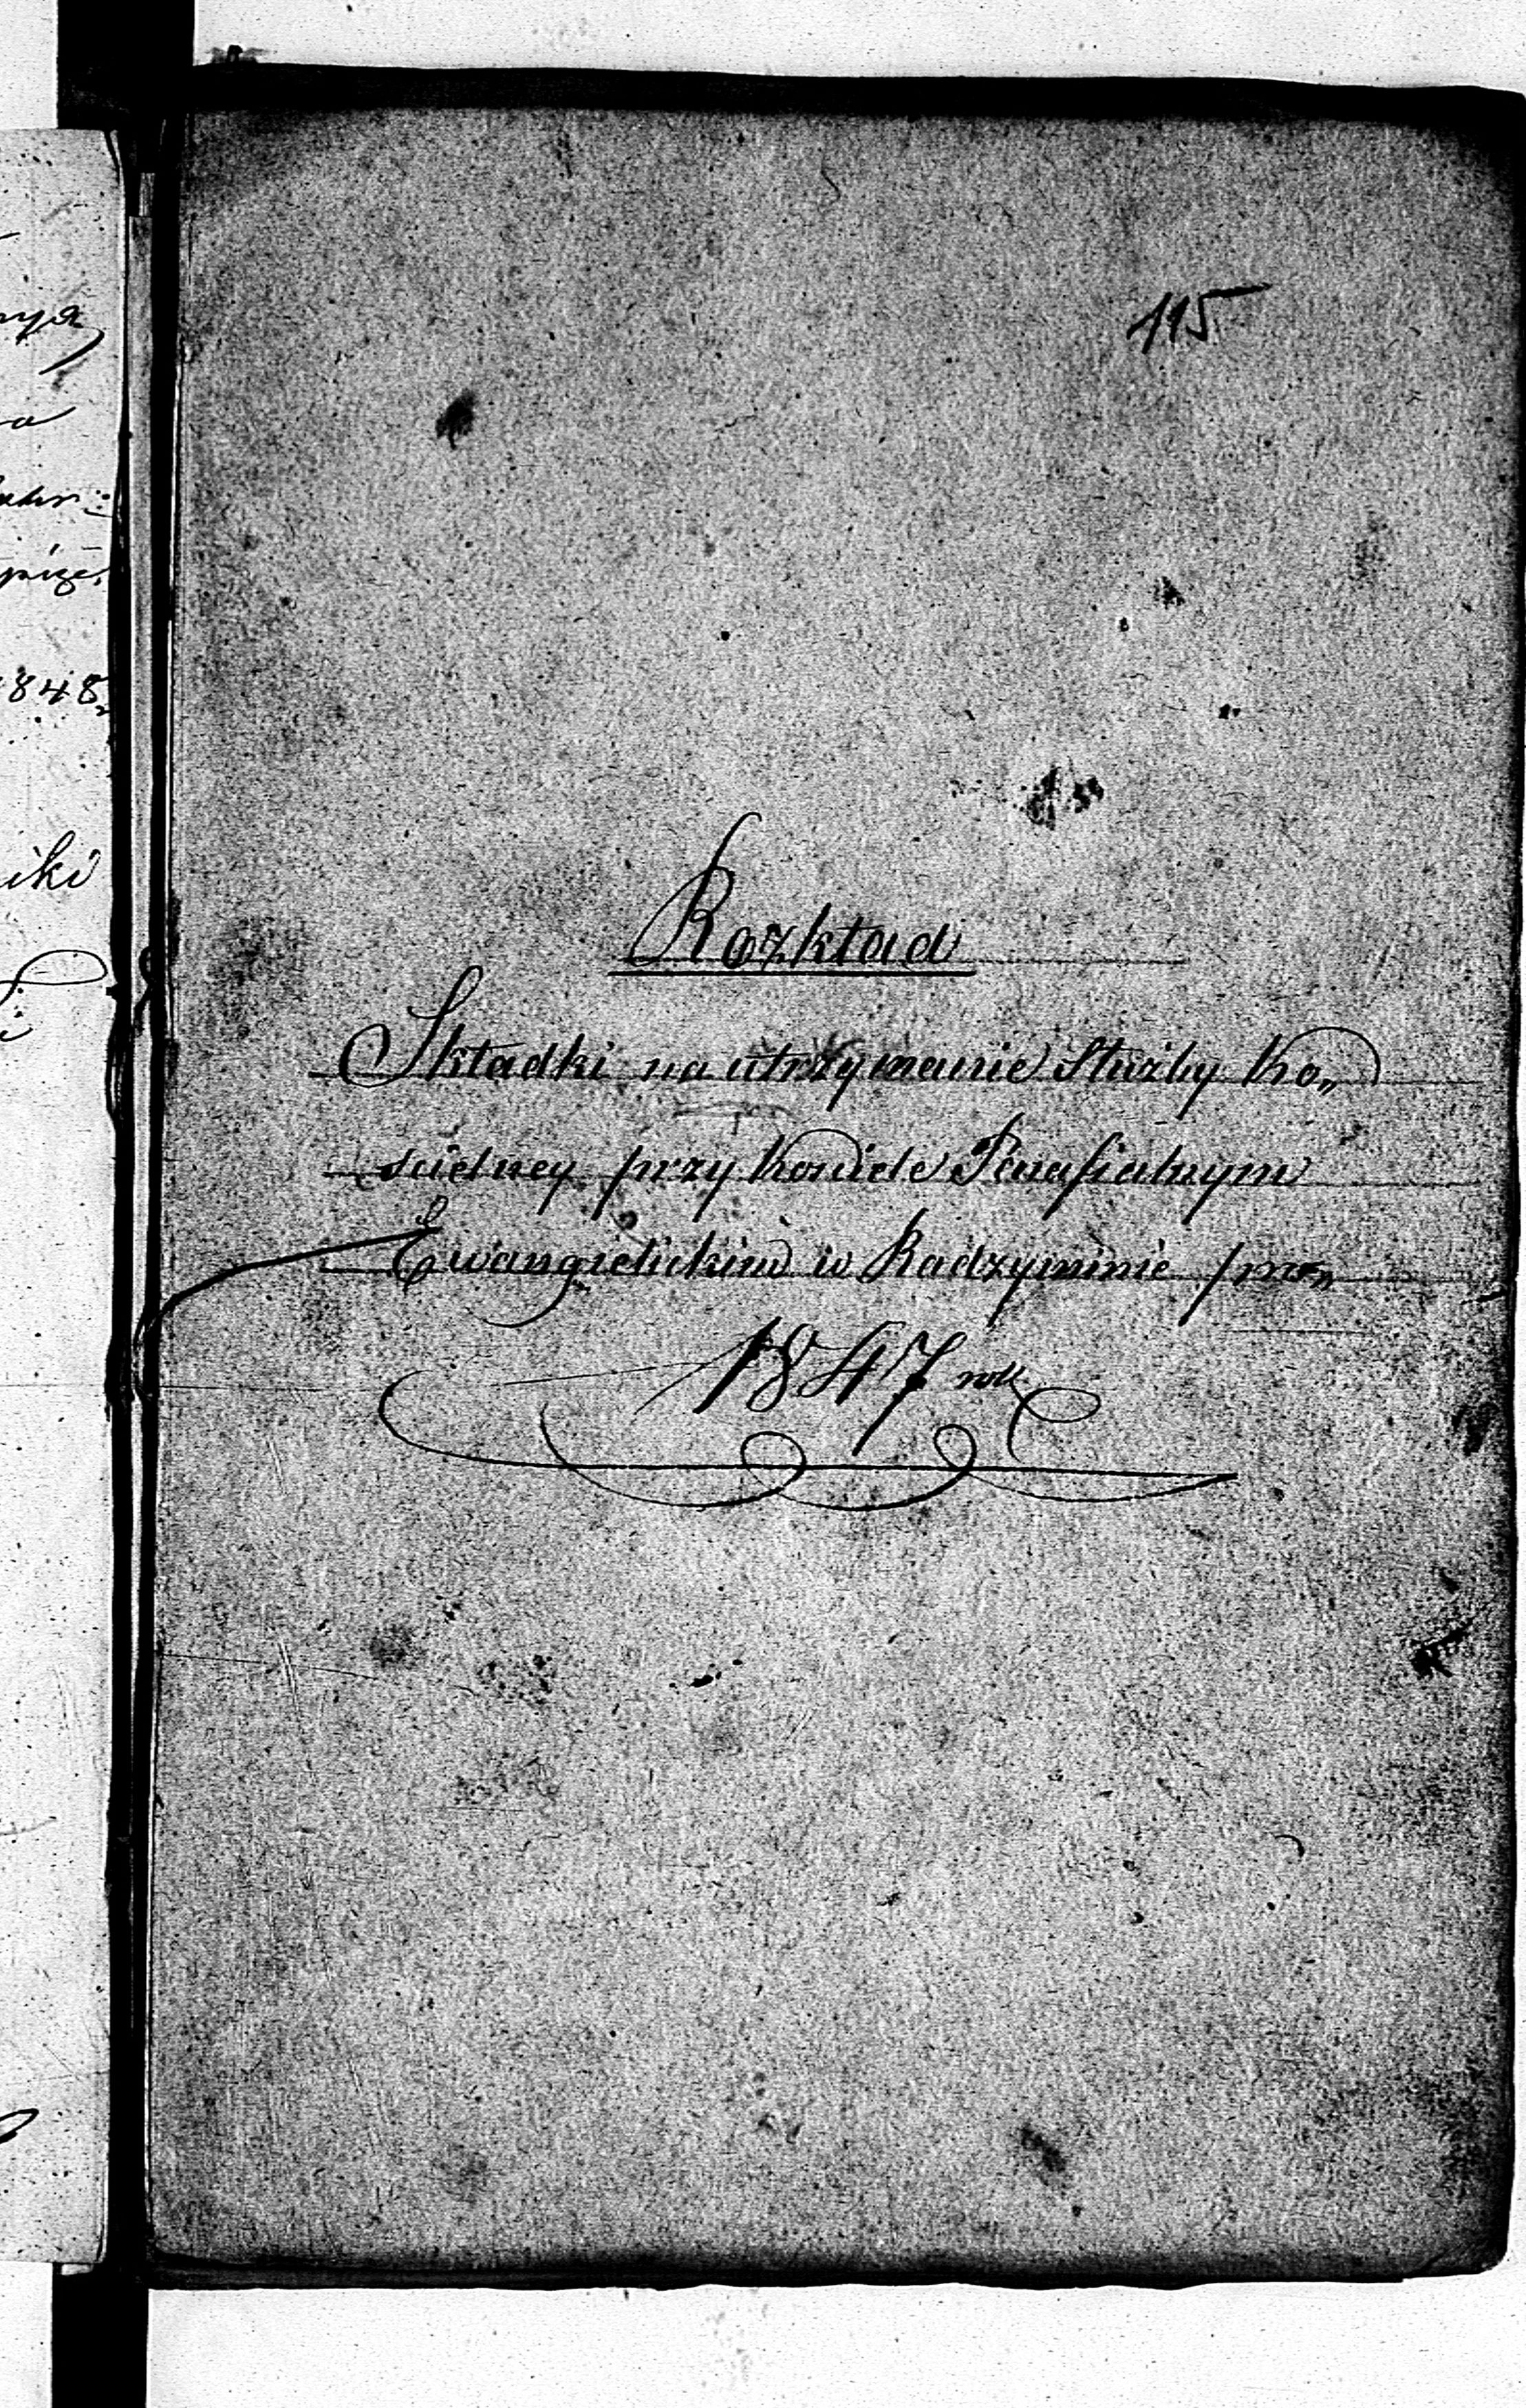 115
Rozkład
Składki na utrzymanie Służby Ko„
scielney przy Kosciele Parafialnym
Ewangielickim w Radzyminie / pro„
1847 rok
848
iki